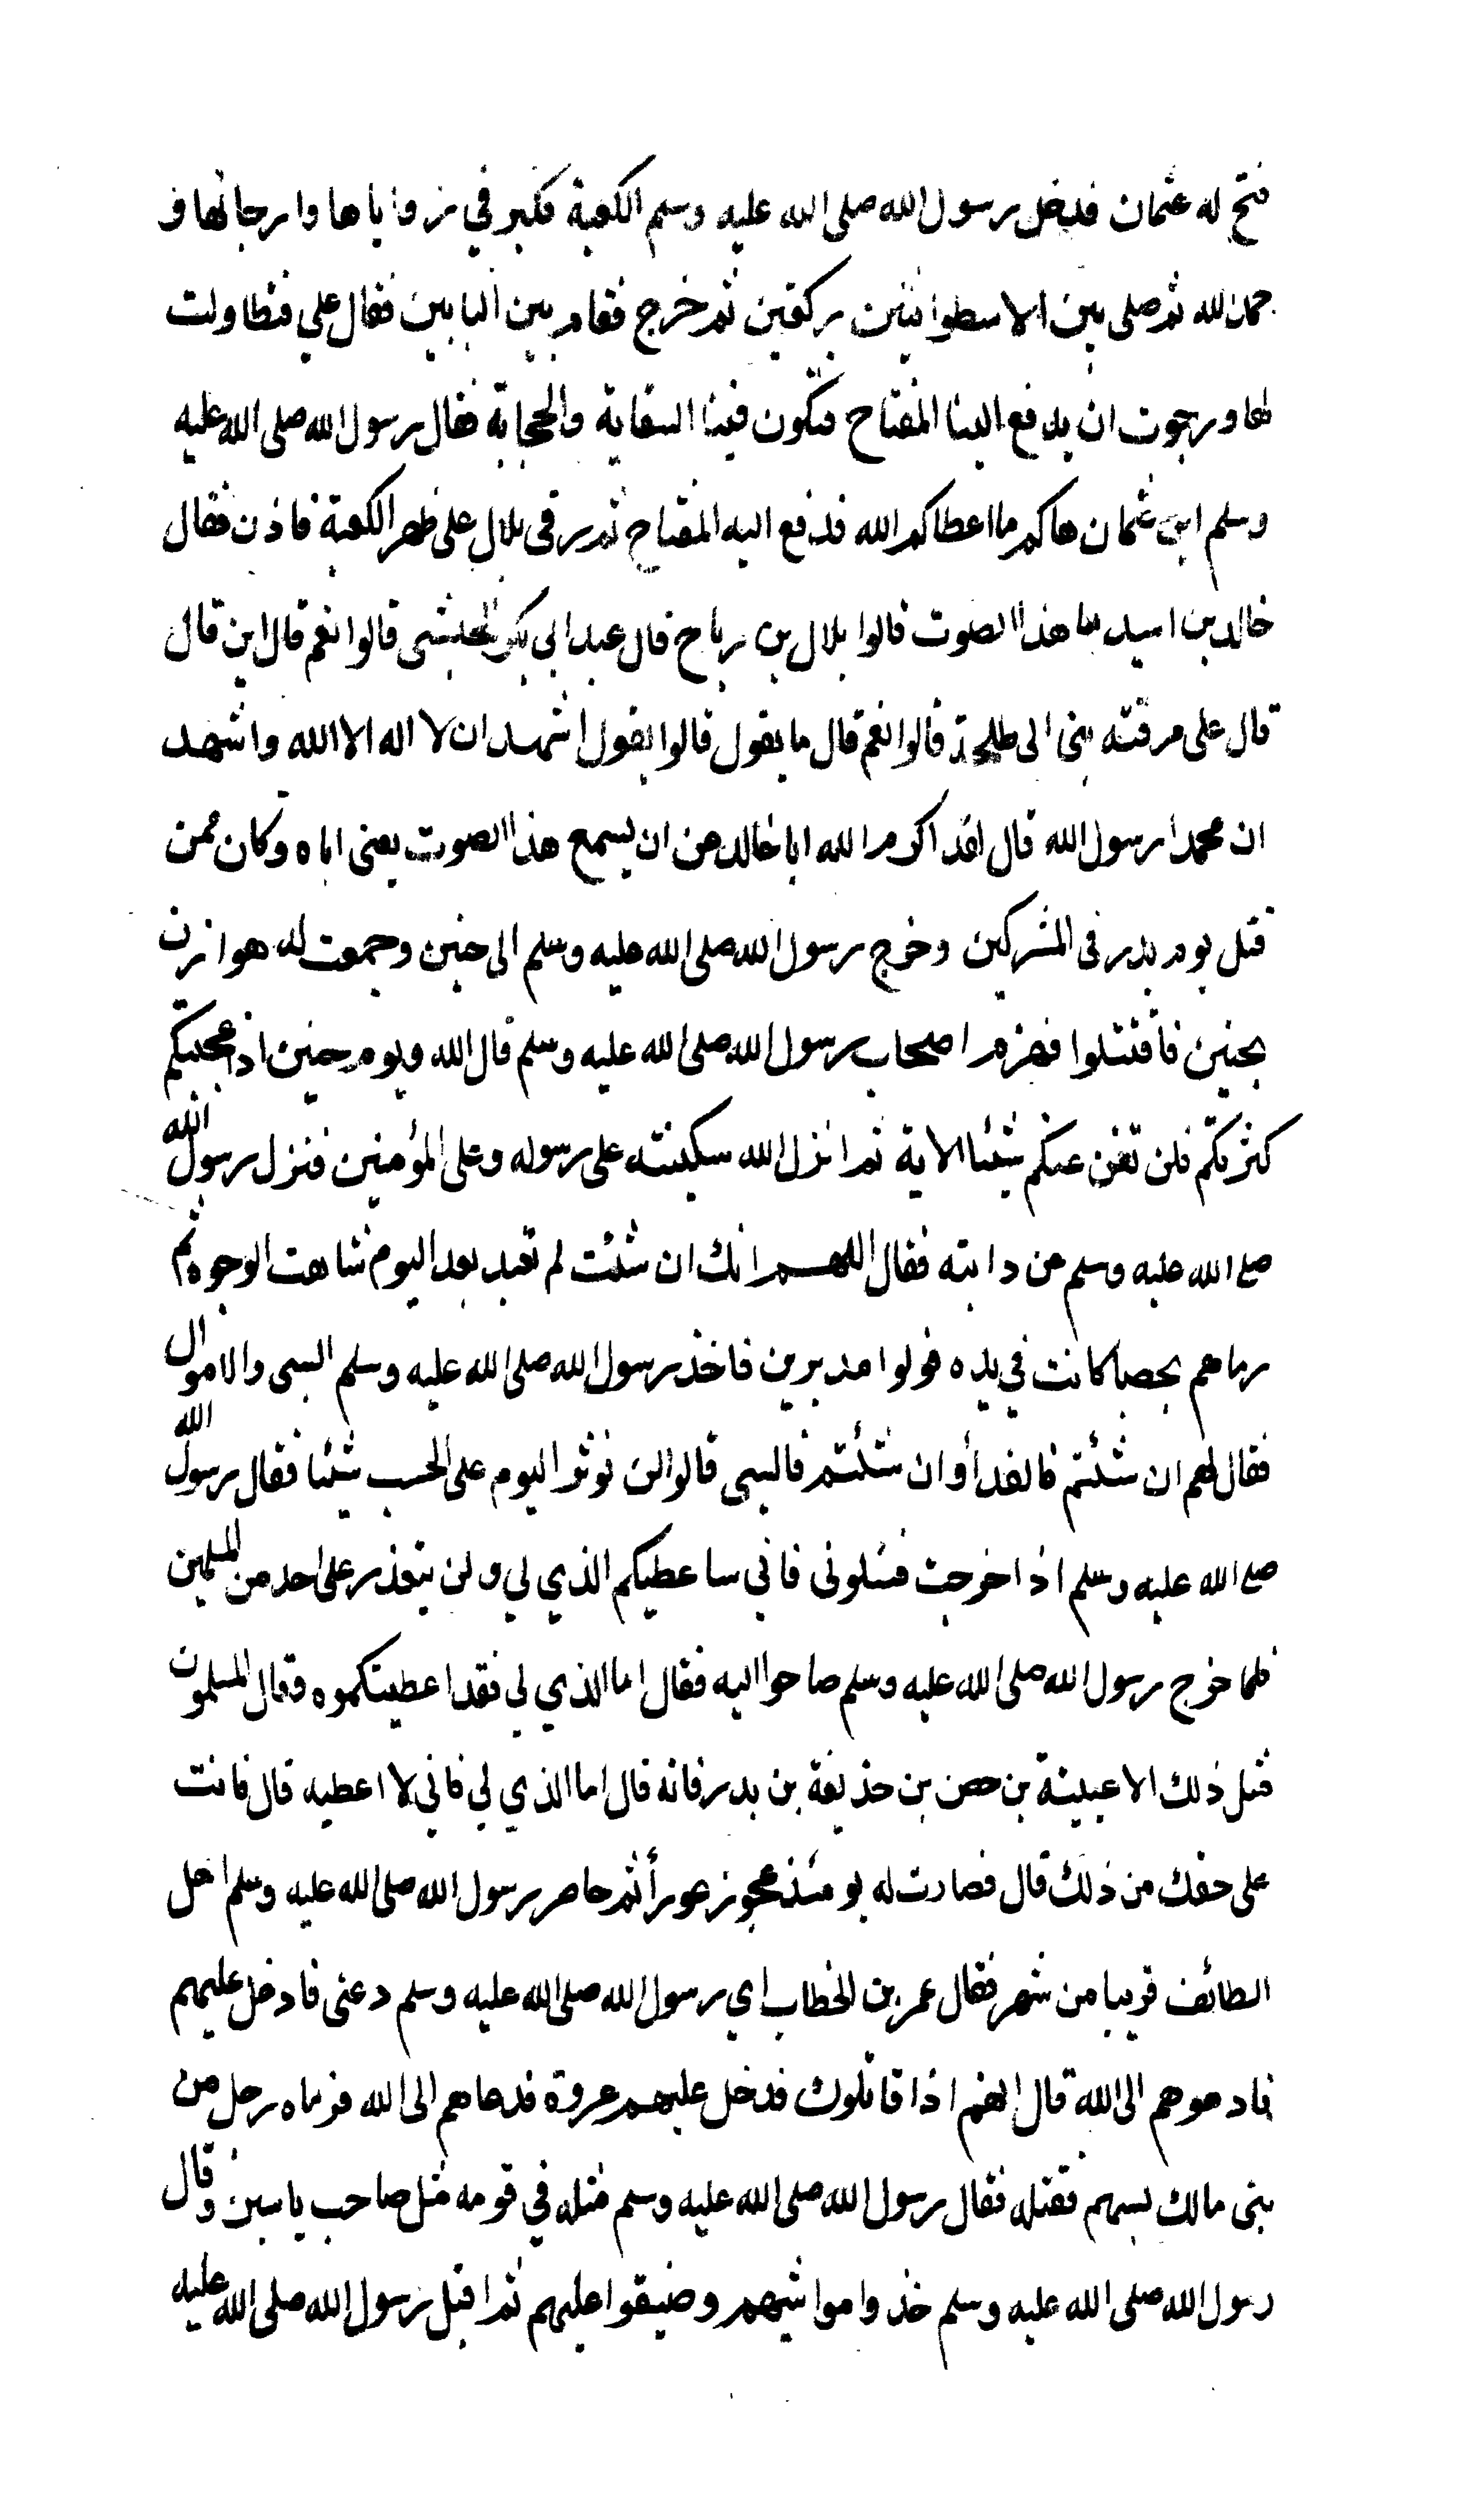 فتح له عثمان فدخل رسول الله صلى الله عليه وسلم الكعبة فكبر في زواياها وارجائها و
حمد الله ثم صلى بين الاسطوانتين ركعتين ثم خرج فقام بين البابين فقال علي فتطاولت
لها ورجوت ان يدفع الينا المفتاح فتكون فينا السقاية والحجابة فقال رسول الله صلى الله عليه
وسلم اين عثمان هاكم ما اعطاكم الله فدفع اليه المفتاح ثم رقى بلال على ظهر الكعبة فاذن فقال
خالد بن اسيد ما هذا الصوت قالوا بلال بن رباح قال عبد ابي بكر الحبشي قالوا نعم قال اين قال
قال على مرقته بني ابي طلحة قالوا نعم قال ما يقول قالوا يقول اشهد ان لا اله الا الله واشهد
ان محمدا رسول الله قال لقد اكرم الله ابا خالد عن ان يسمع هذا الصوت يعني اباه وكان ممن
قتل يوم بدر في المشركين وخرج رسول الله صلى الله عليه وسلم الى حنين وجمعت له هوازن
بحنين فاقتتلوا فهزم اصحاب رسول الله صلى الله عليه وسلم قال الله ويوم حنين اذ اعجبتكم
كثرتكم فلن تغن عنكم شيئا الاية ثم انزل الله سكينته على رسوله وعلى المؤمنين فنزل رسول الله
صلع الله عليه وسلم عن دابته فقال اللهم انك ان شئت لم تعبد بعد اليوم شاهت الوجوه ثم
رماهم بحصبا كانت في يده فولوا مدبرين فاخذ رسول الله صلى الله عليه وسلم السبي والاموال
فقال لهم ان شئتم فالفدأ وان شئتم فالسبي قالوا لن نوثر اليوم على الحسب شيئا فقال رسول الله
صلع الله عليه وسلم اذا خرجت فسلوني فاني ساعطيكم الذي لي ولن يتعذر على احد من المسلمين
فلما خرج رسول الله صلى الله عليه وسلم صاحوا اليه فقال اما الذي لي فقد اعطيتكموه وقال المسلمون
مثل ذلك الا عيينة بن حصن بن حذيفة بن بدر فانه قال اما الذي لي فاني لا اعطيه قال فانت
على حقك من ذلك قال فصارت له يومئذ عجوز عورأ ثم حاصر رسول الله صلى الله عليه وسلم اهل
الطائف قريبا من شهر فقال عمر بن الخطاب اي رسول الله صلى الله عليه وسلم دعني فادخل عليهم
فادعوهم الى الله قال انهم اذا قاتلوك فدخل عليهم عروة فدعاهم الى الله فرماه رجل من
بني مالك بسهم فقتله فقال رسول الله صلى الله عليه وسلم مثله في قومه مثل صاحب ياسين وقال
رسول الله صلى الله عليه وسلم خذوا مواشيهم وضيقوا عليهم ثم اقبل رسول الله صلى الله عليه